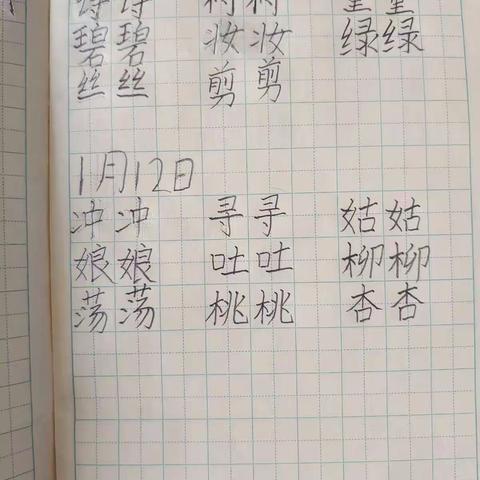 诗诗 村村 童童
碧碧 妆妆 绿绿
丝丝 剪剪
1月12日
冲冲 寻寻 姑姑
娘娘 吐吐 柳柳
荡荡 桃桃 杏杏